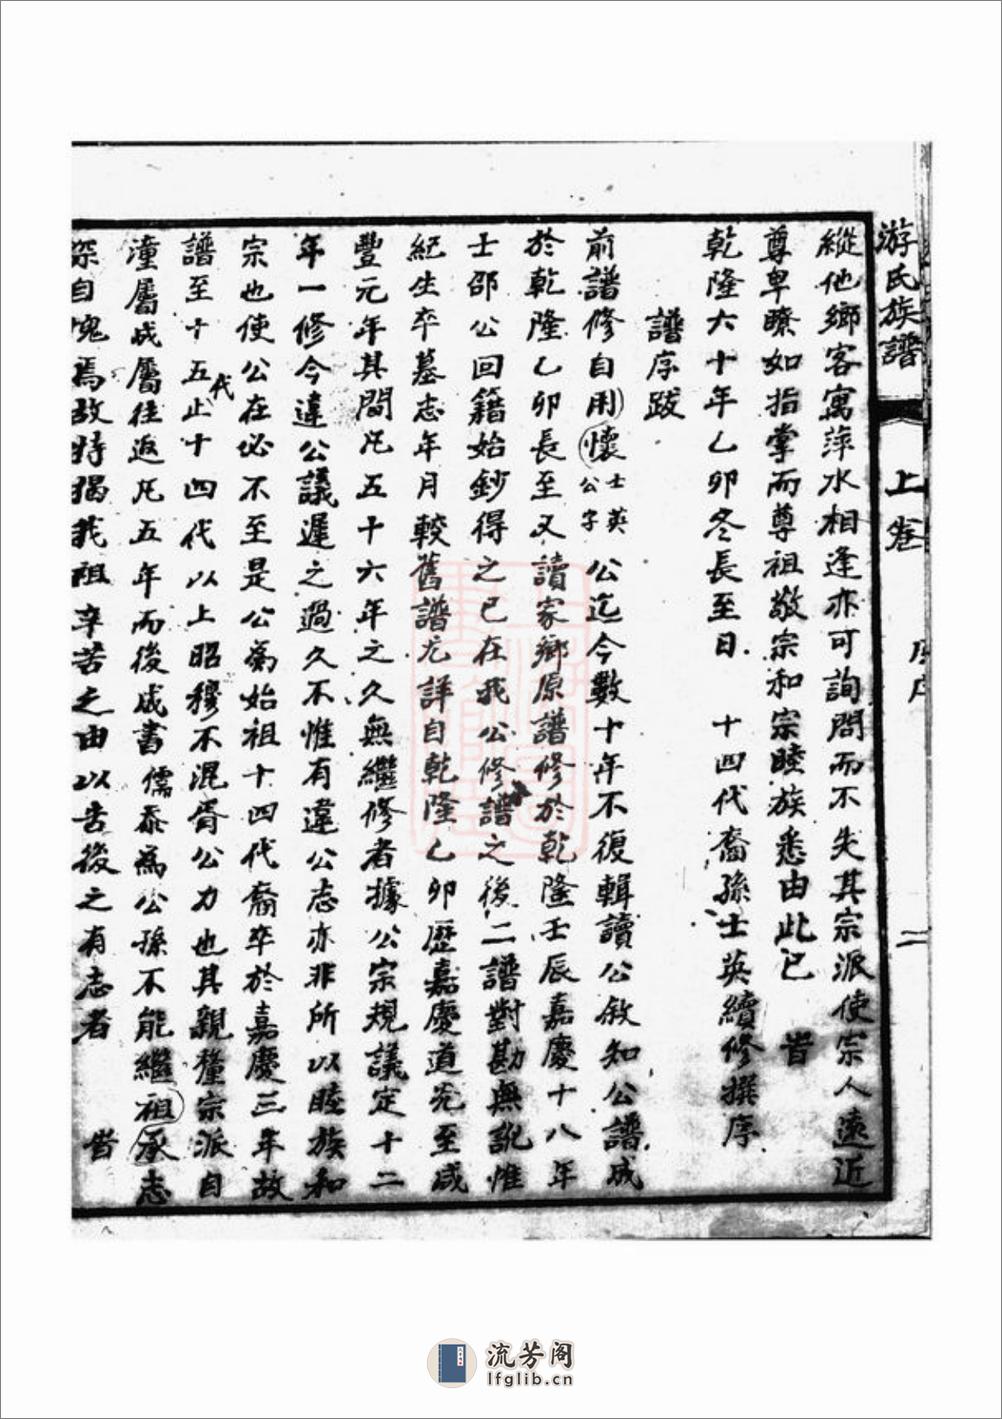 游氏族譜 上卷 序 二
縱他鄉客寓萍水相逢亦可詢問而不失其宗派使宗人遠近
尊卑瞭如指掌而尊祖敬宗和宗睦族悉由此已 昔
乾隆六十年乙卯冬長至日 十四代裔孫士英續修撰序
譜序跋
前譜修自用懷士英公字公迄今數十年不復輯讀公敘知公譜成
於乾隆乙卯長至又讀家鄉原譜修於乾隆壬辰嘉慶十八年
士邵公回籍始鈔得之已在我公修譜之後二譜對勘無訛惟
紀生卒墓志年月較舊譜尤詳自乾隆乙卯歷嘉慶道光至咸
豐元年其間凡五十六年之久無繼修者據公宗規議定十二
年一修今違公議遲之過久不惟有違公志亦非所以睦族和
宗也使公在必不至是公為始祖十四代裔卒於嘉慶三年故
譜至十五代止十四代以上昭穆不混胥公力也其親釐宗派自
潼屬成屬往返凡五年而後成書儒泰為公孫不能繼祖承志
深自愧焉故特揭我祖辛苦之由以告後之有志者 昔
流芳阁
lfglib.cn